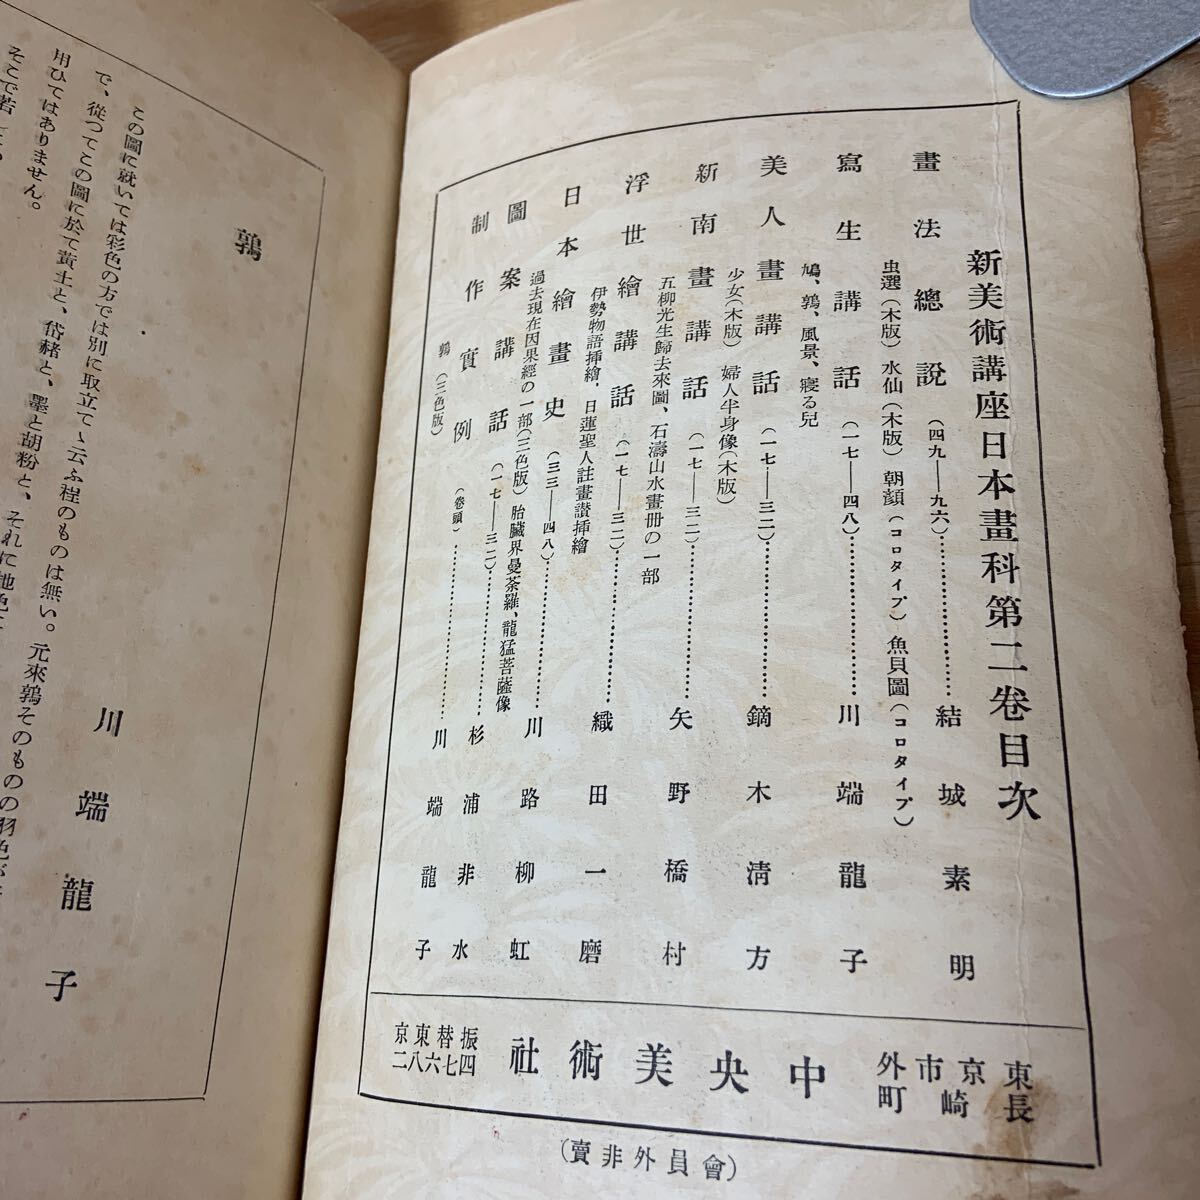 新美術講座日本畫科第二卷目次
畫法總說(四九—九六)結城素明
虫選(木版) 水仙(木版) 朝顏(コロタイプ) 魚貝圖(コロタイプ)
寫生講話(一七—四八)川端龍子
鳩、鶉、風景、寢る兒
美人畫講話(一七—三二)鏑木淸方
少女(木版) 婦人半身像(木版)
新南畫講話(一七—三二)矢野橋村
五柳先生歸去來圖、石濤山水畫册の一部
浮世繪講話(一七—三二)織田一磨
伊勢物語挿繪、日蓮聖人註畫讃挿繪
日本繪畫史(三三—四八)川路柳虹
過去現在因果經の一部(三色版) 胎臟界曼荼羅、龍猛菩薩像
圖案講話(一七—三二)杉浦非水
制作實例(卷頭)川端龍子
鶉(三色版)
東京市外長崎町
中央美術社
振替東京四七六八二
(會員外非賣)
鶉
川端龍子
この圖に就いては彩色の方では別に取立てゝ云ふ程のものは無い。元來鶉そのものの羽色が
で、從つてこの圖に於て黃土と、岱赭と、墨と胡粉と、それに地色
用ひてはありません。